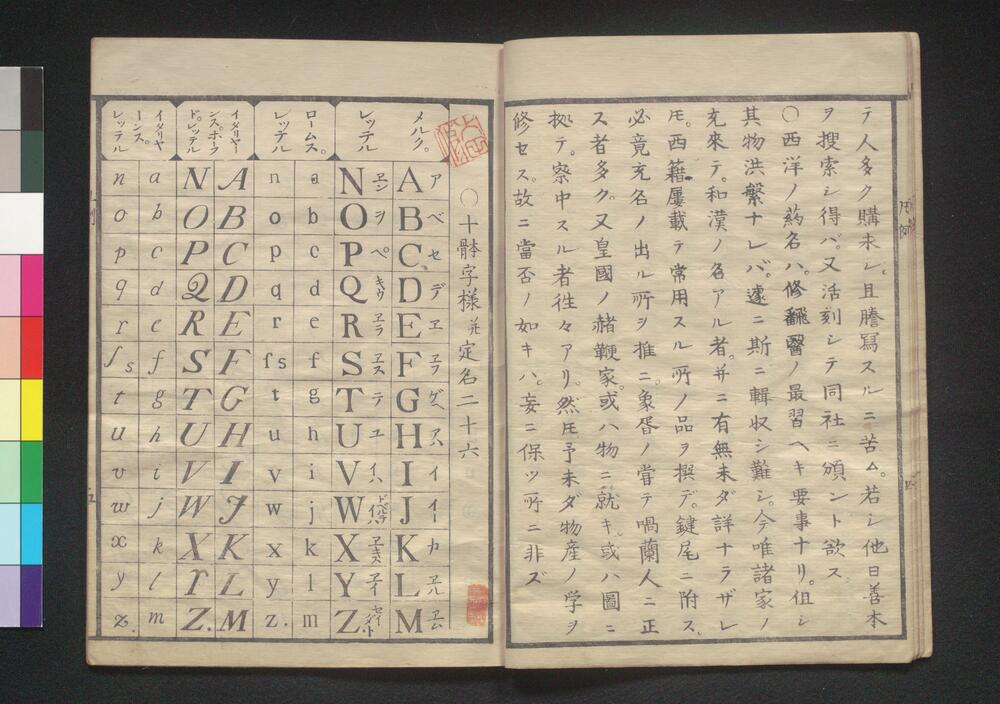 テ人多ク購求シ。且謄寫スルニ苦ム。若シ他日善本
ヲ搜索シ得バ。又活刻シテ同社ニ頒ント欲ス
〇西洋ノ藥名ハ。修飜醫ノ最習ヘキ要事ナリ。但シ
其物洪繁ナレバ。遽ニ斯ニ輯収シ難シ。今唯諸家ノ
充來テ。和漢ノ名アル者。并ニ有無未ダ詳ナラザレ
𪜈。西籍屢載テ常用スル所ノ品ヲ撰デ。鍵尾ニ附ス。
必竟充名ノ出ル所ヲ推ニ。象胥ノ嘗テ喎蘭人ニ正
ス者多ク。又皇國ノ赭鞭家。或ハ物ニ就キ。或ハ圖ニ
拠テ。察中スル者徃々アリ。然𪜈予未ダ物産ノ学ヲ
修セス。故ニ當否ノ如キハ。妄ニ保ツ所ニ非ズ
〇十體字様並定名二十六
メルク。
レッテル
ア ベ セ デ ヱ ヱフ ゲヘ アハ イ イー カ ヱル ヱム
A B C D E F G H I J K L M
ヱン ヲ ペ キウ ヱラ ヱス テ ユ イハ ヱキス ヱイ
N O P Q R S T U V W X Y Z.
ロームス。
レッテル
a b c d e f g h i j k l m
n o p q r ſs t u v w x y z.
イタリヤー
ンス。ホーフ
ド。レッテル
A B C D E F G H I J K L M
N O P Q R S T U V W X Y Z.
イタリヤ
ーンス。
レッテル
a b c d e f g h i j k l m
n o p q r ſs t u v w x y z.